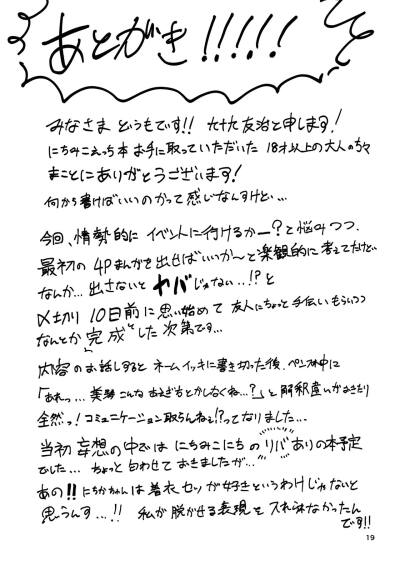 あとがき!!!!!
みなさま どうもです!! 九十九友治と申します!
にちみこえっち本お手に取っていただいた 18才以上の大人の方々
まことにありがとうございます!
何から書けばいいのかって感じなんすけど…
今回、情勢的に イベントに行けるかー?と悩みつつ、
最初の 4Pまんがを出せばいいか〜と楽観的に考えてたけど、
なんか…出さないと ヤバじゃない…!?と
〆切り 10日前に思い始めて 友人にちょっと手伝いもらいつつ
なんとか完成した次第です…
内容のお話しすると ネームイッキに書き切った後、ペン入れ中に
「あれっ…美琴こんな
とかしなくね…?」と解釈違いがおきたり
全然っ!コミュニケーション取らんねぇ!?ってなりました…
当初 妄想の中では にちみこにちの リバありの本予定
でした… ちょっと匂わせておきましたが…
あの!! にちかちゃんは着衣セッが好きというわけじゃないと
思うんす…!! 私が脱がせる表現を入れられなかったん
です!!
19